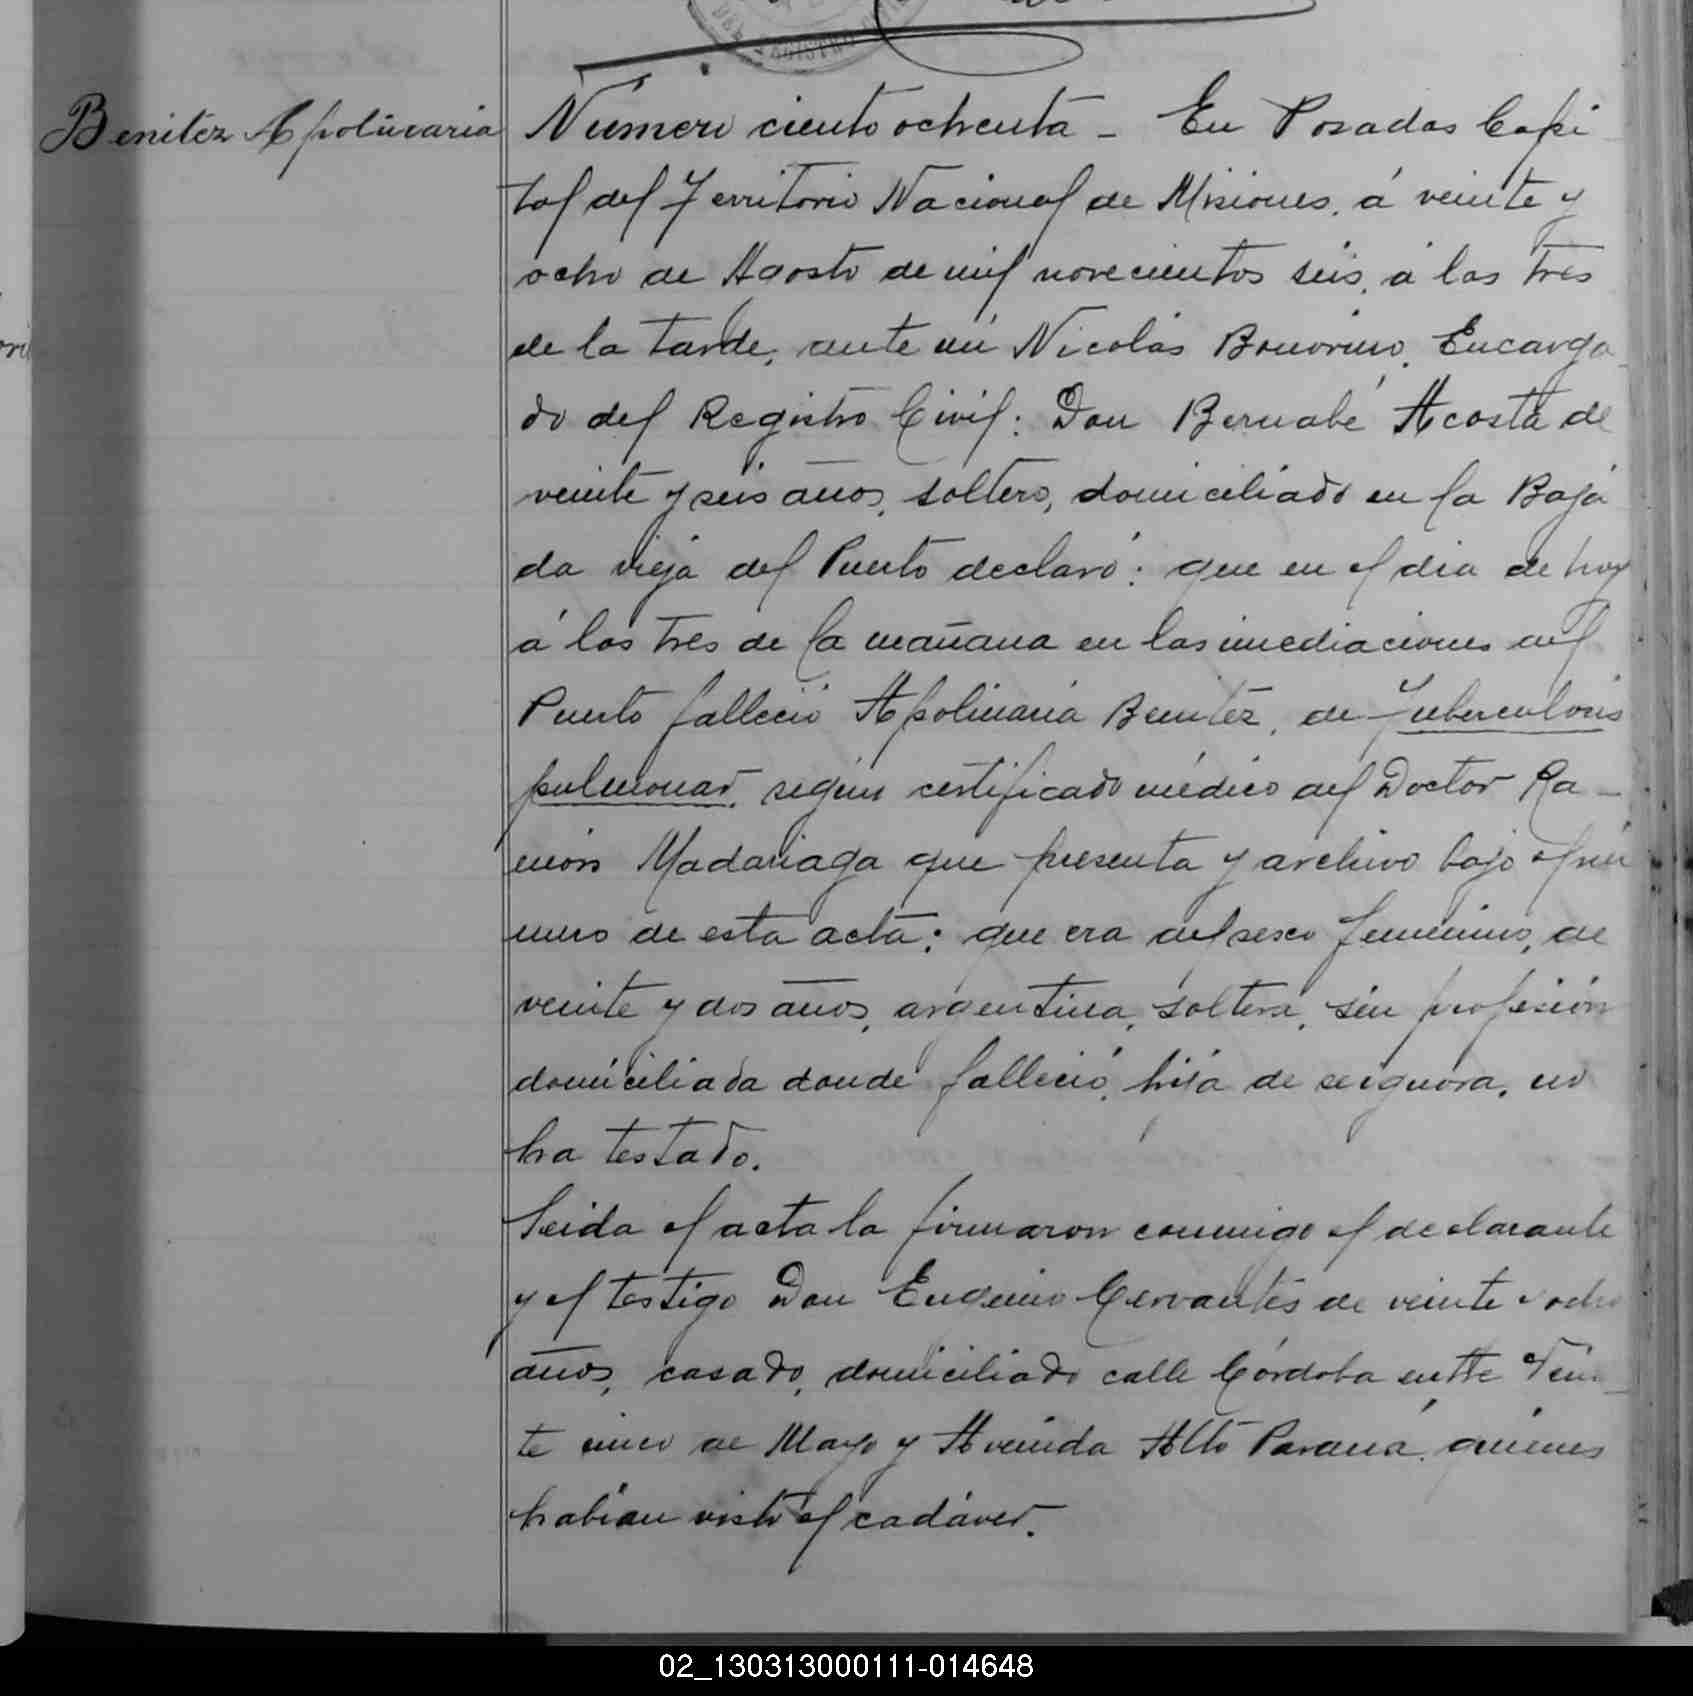 Benitéz Apolinaria
Número ciento ochenta - En Posadas Capi
tal del Territorio Nacional de Misiones, á veinte y
ocho de Agosto de mil novecientos seis, á las tres
de la tarde, ante mi Nicolás Bonorino, Encarga
do del Registro Civil: Don Bernabé Acosta de
veinte y seis años, soltero, domiciliado en la Baja
da vieja del Puerto declaró: que en el dia de hoy
á las tres de la mañana en las imediaciones del
Puerto falleció Apolinaria Benitéz, de Tuberculosis
pulmonar, según certificado médico del Doctor Ra-
món Madariaga que presenta y archivo bajo el nú
mero de esta acta; que era del sexo femenino, de
veinte y dos años, argentina, soltera, sin profesión
domiciliada donde falleció, hija de
ha testado.
Leida el acta la firmaron conmigo el declarante
y el testigo Don Eugenio Cervantes de veinte y ocho
años, casado, domiciliado calle Córdoba entre Vein-
te cinco de Mayo y Avenida Alto Paraná, quienes
habian visto el cadáver.
02_130313000111-014648